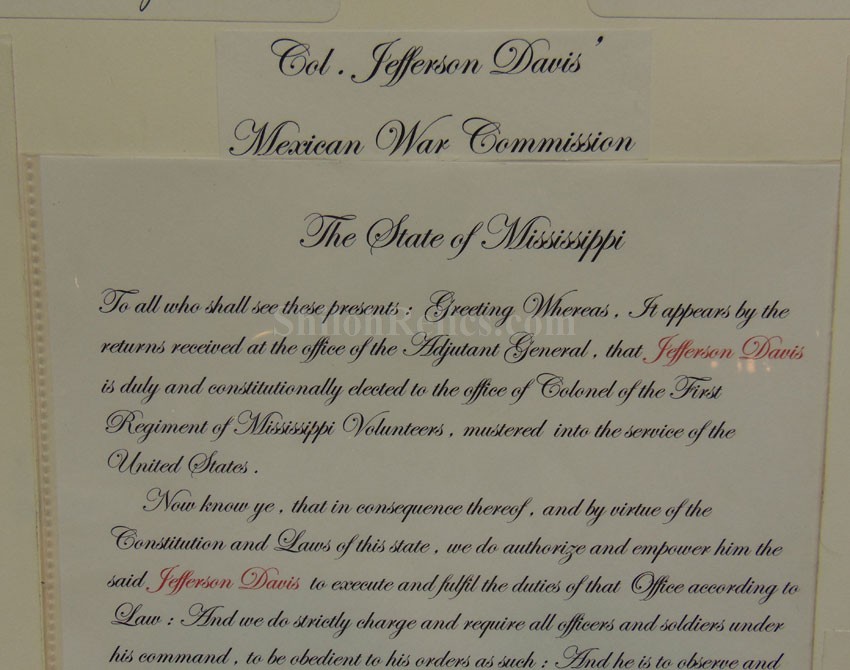 Col . Jefferson Davis'
Mexican War Commission
The State of Mississippi
To all who shall see these presents : Greeting Whereas , It appears by the
ShilohRelics.com
returns received at the office of the Adjutant General , that Jefferson Davis
is duly and constitutionally elected to the office of Colonel of the First
Regiment of Mississippi Volunteers , mustered into the service of the
United States .
Now know ye , that in consequence thereof , and by virtue of the
Constitution and Laws of this state , we do authorize and empower him the
said Jefferson Davis to execute and fulfil the duties of that Office according to
Law : And we do strictly charge and require all officers and soldiers under
his command , to be obedient to his orders as such : And he is to observe and